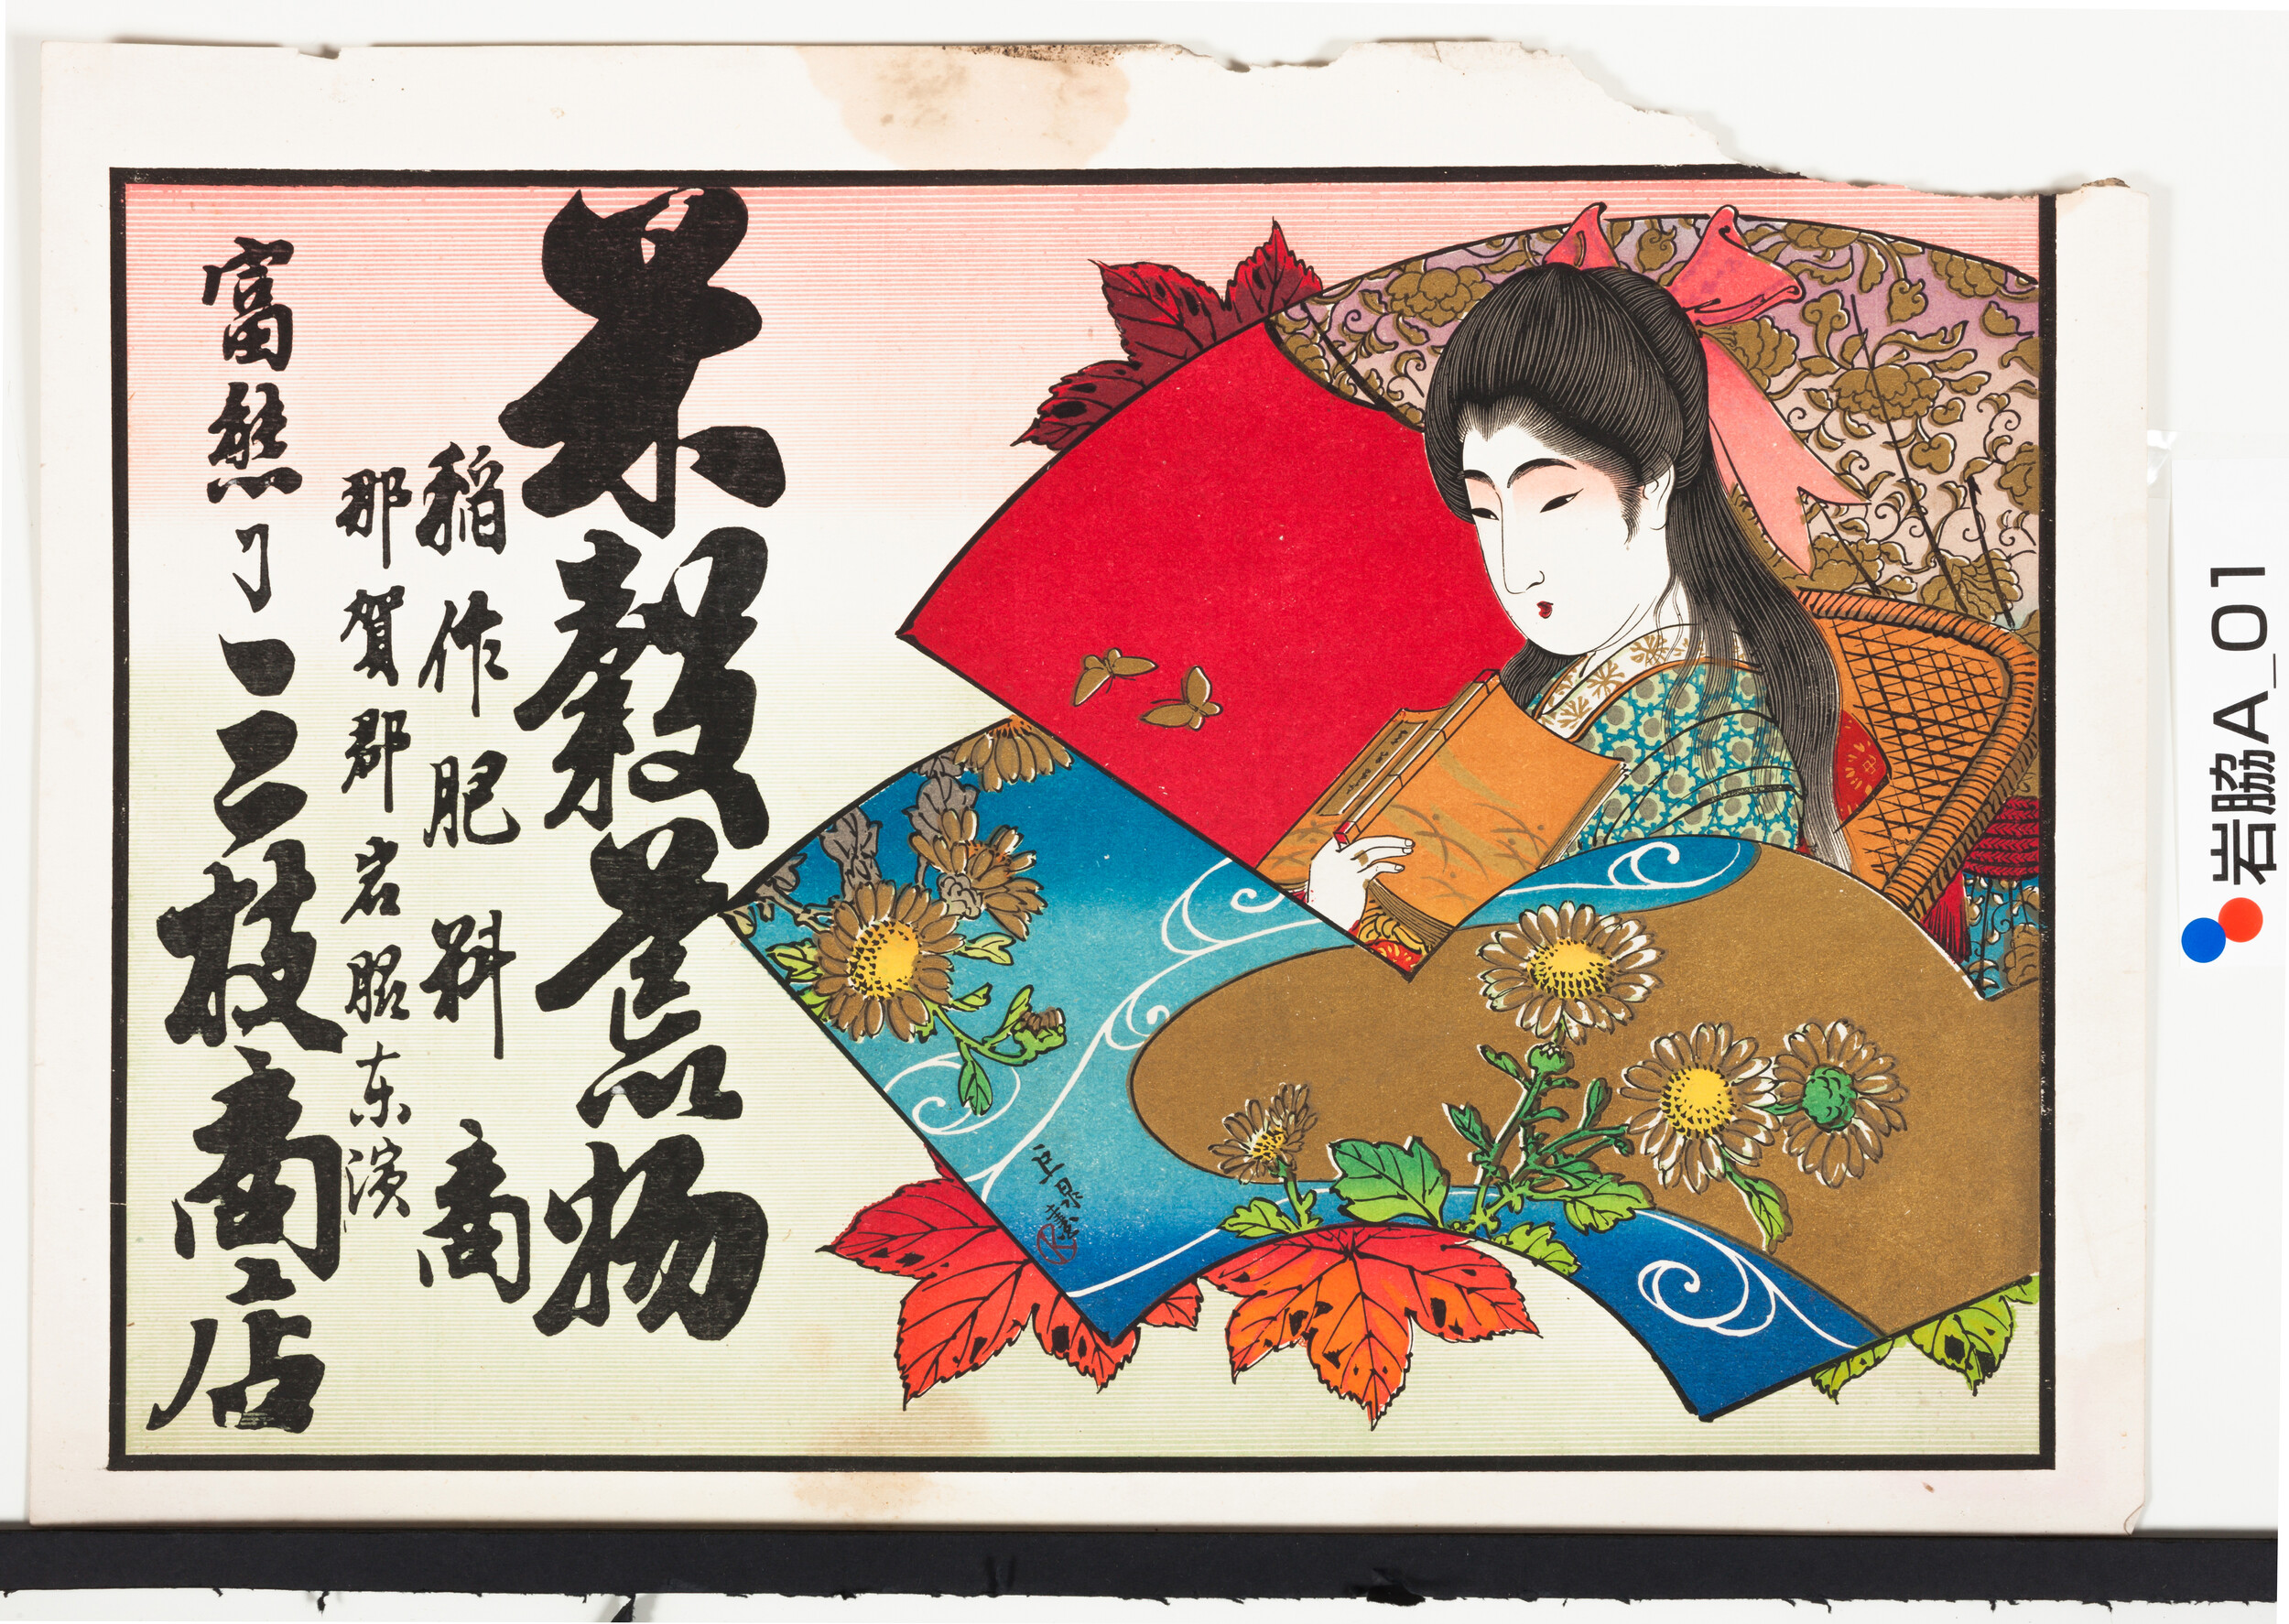 米穀荒物
稲作肥料商
那賀郡岩脇东濱
富熊ヿ三枝商店
岩脇A_01